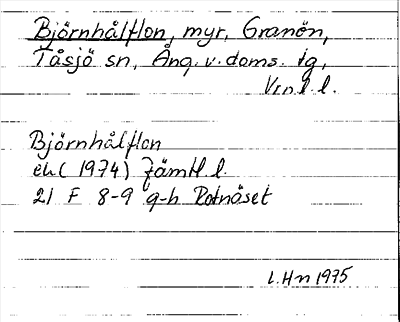 Björnhålflon, myr, Granön,
Tåsjö sn, Ång. v. doms. tg,
Vrnl. l.
Björnhålflon
ek (1974) Jämtl. l.
21 F 8-9 g-h Rotnäset
L. Hn 1975